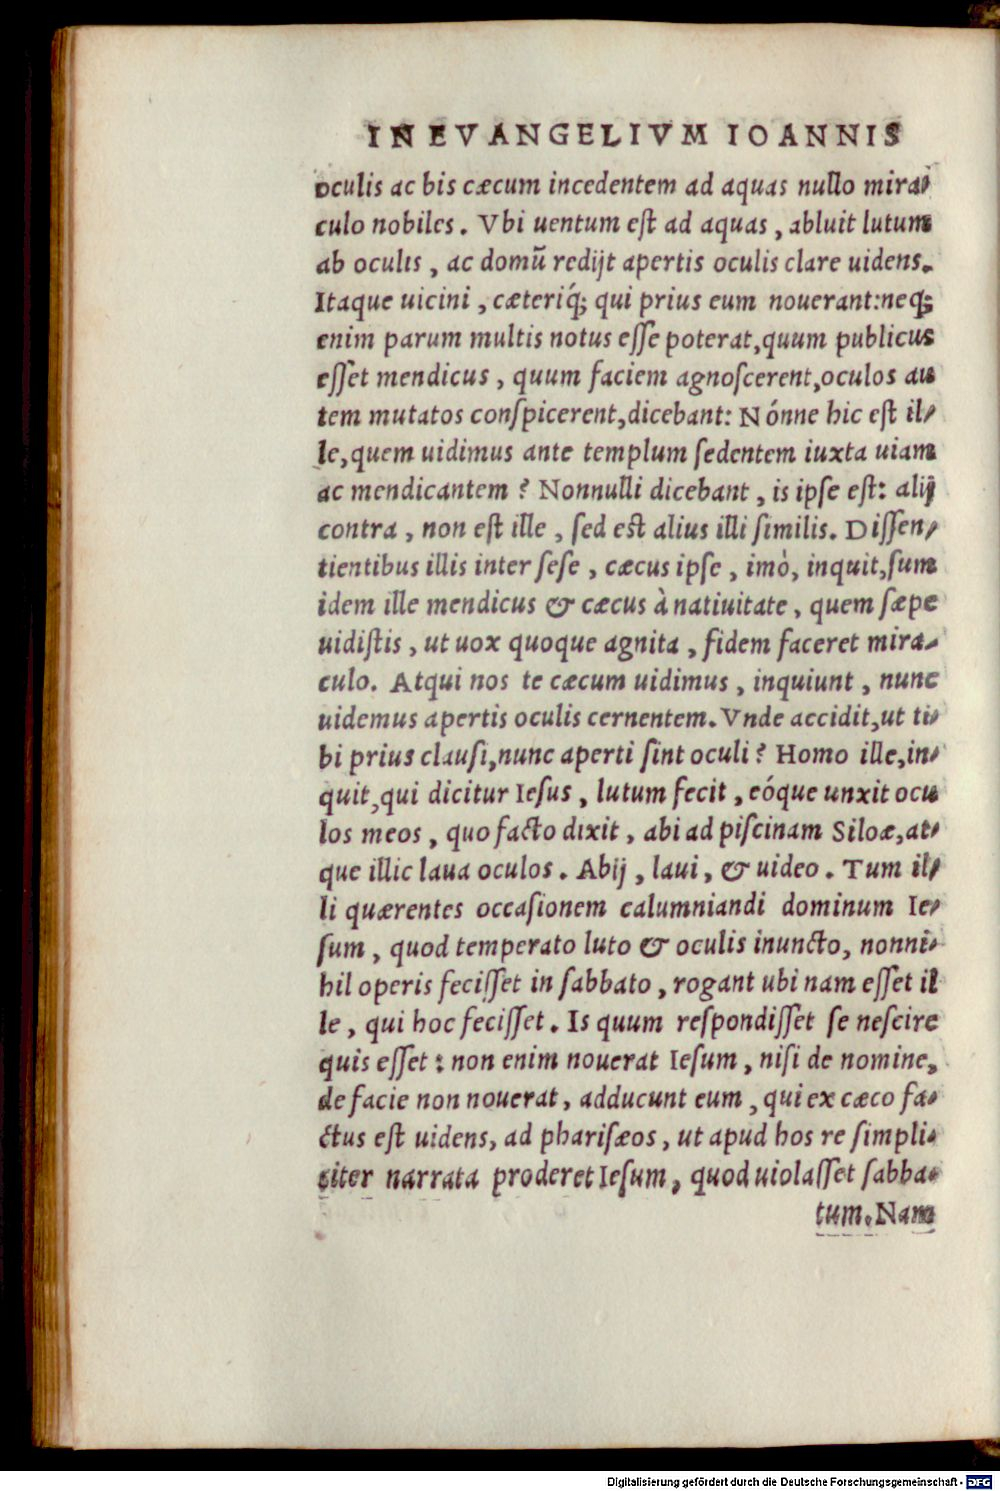 IN EVANGELIVM IOANNIS
oculis ac bis cæcum incedentem ad aquas nullo mira-
culo nobiles. Vbi uentum est ad aquas, abluit lutum
ab oculis, ac domũ redijt apertis oculis clare uidens.
Itaque uicini, cæteriq́; qui prius eum nouerant:neq;
enim parum multis notus esse poterat,quum publicus
esset mendicus, quum faciem agnoscerent,oculos au
tem mutatos conspicerent,dicebant: Nónne hic est il-
le,quem uidimus ante templum sedentem iuxta uiam
ac mendicantem? Nonnulli dicebant, is ipse est: alij
contra, non est ille, sed est alius illi similis. Dissen-
tientibus illis inter sese, cæcus ipse, imò, inquit,sum
idem ille mendicus & cæcus à natiuitate, quem sæpe
uidistis, ut uox quoque agnita, fidem faceret mira-
culo. Atqui nos te cæcum uidimus, inquiunt, nunc
uidemus apertis oculis cernentem. Vnde accidit,ut ti-
bi prius clausi,nunc aperti sint oculi? Homo ille,in-
quit,qui dicitur Iesus, lutum fecit, eóque unxit ocu
los meos, quo facto dixit, abi ad piscinam Siloæ,at-
que illic laua oculos. Abij, laui, & uideo. Tum il-
li quærentes occasionem calumniandi dominum Ie-
sum, quod temperato luto & oculis inuncto, nonni-
hil operis fecisset in sabbato, rogant ubi nam esset il
le, qui hoc fecisset. Is quum respondisset se nescire
quis esset: non enim nouerat Iesum, nisi de nomine,
de facie non nouerat, adducunt eum, qui ex cæco fa-
ctus est uidens, ad pharisæos, ut apud hos re simpli-
citer narrata proderet Iesum, quod uiolasset sabba-
tum. Nam
Digitalisierung gefördert durch die Deutsche Forschungsgemeinschaft - DFG